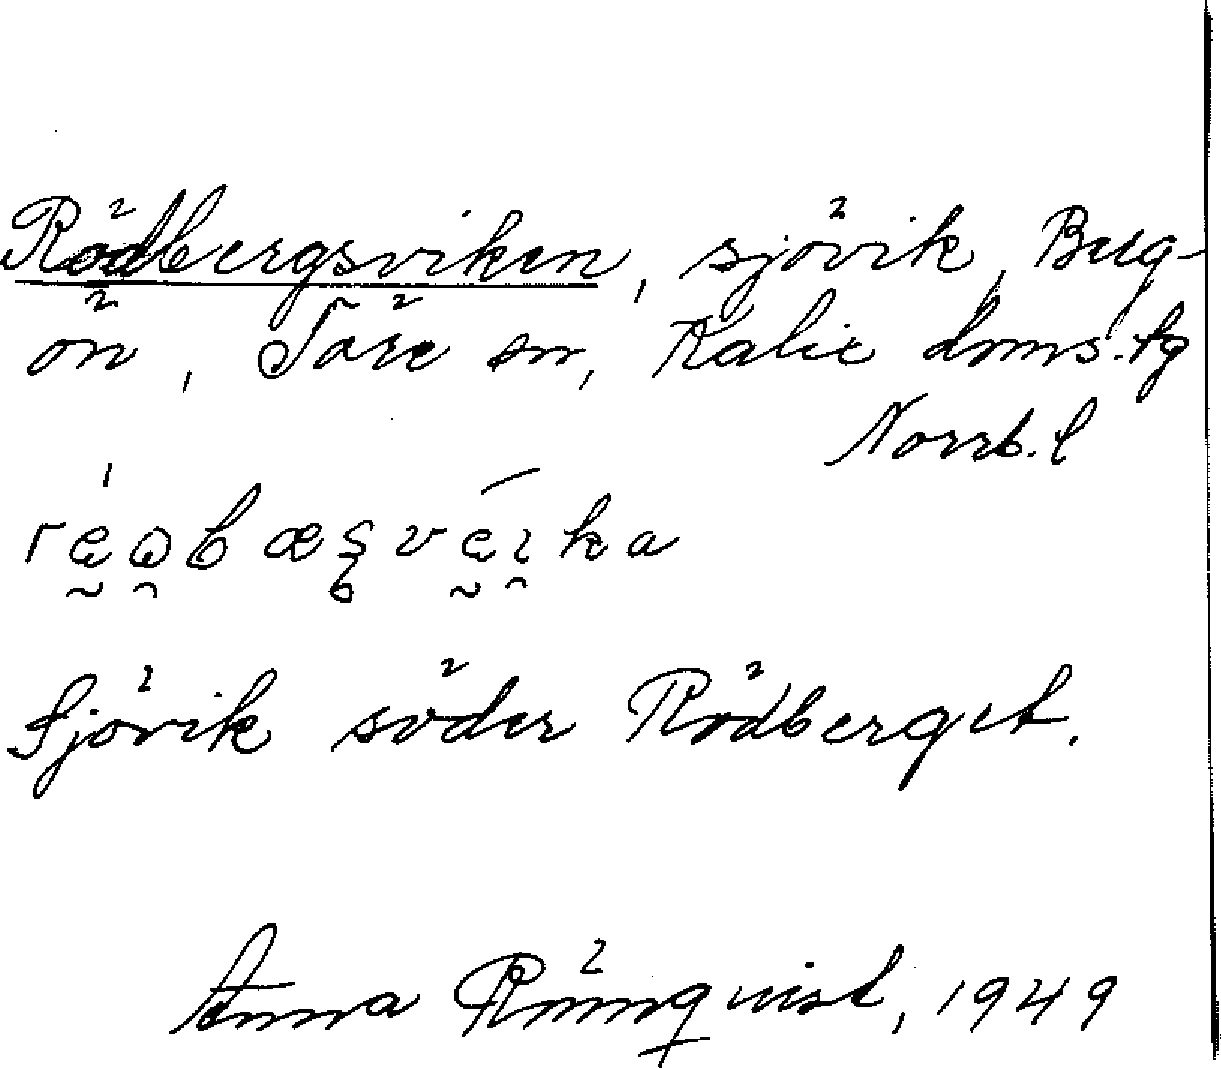 Rödbergsviken, sjövik, Berg-
ön, Töre sn, Kalix dms.tg
Norrb. l
Sjövik söder Rödberget.
Anna Rönnqvist, 1949